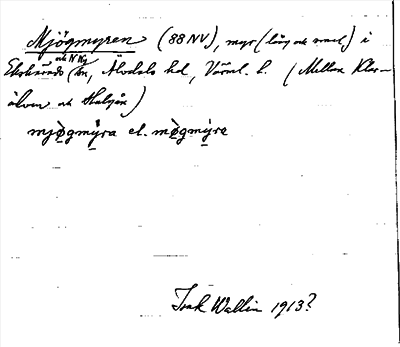 Mjögmyren (88 NV), myr (lång och smal) i
Ekshärads och N Ny snr, Älvdals hd, Värml. l. (Mellan Klar-
älven och Halgån)
mjògmýra el. mògmýra
Isak Wallin 1913?